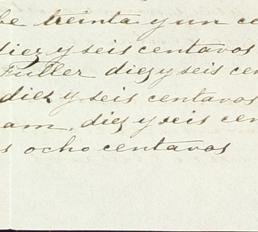 be treinta y un ce
diez y seis centavos
Fuller diez y seis cen
diez y seis centavos
am, diez y seis cen
s ocho centavos